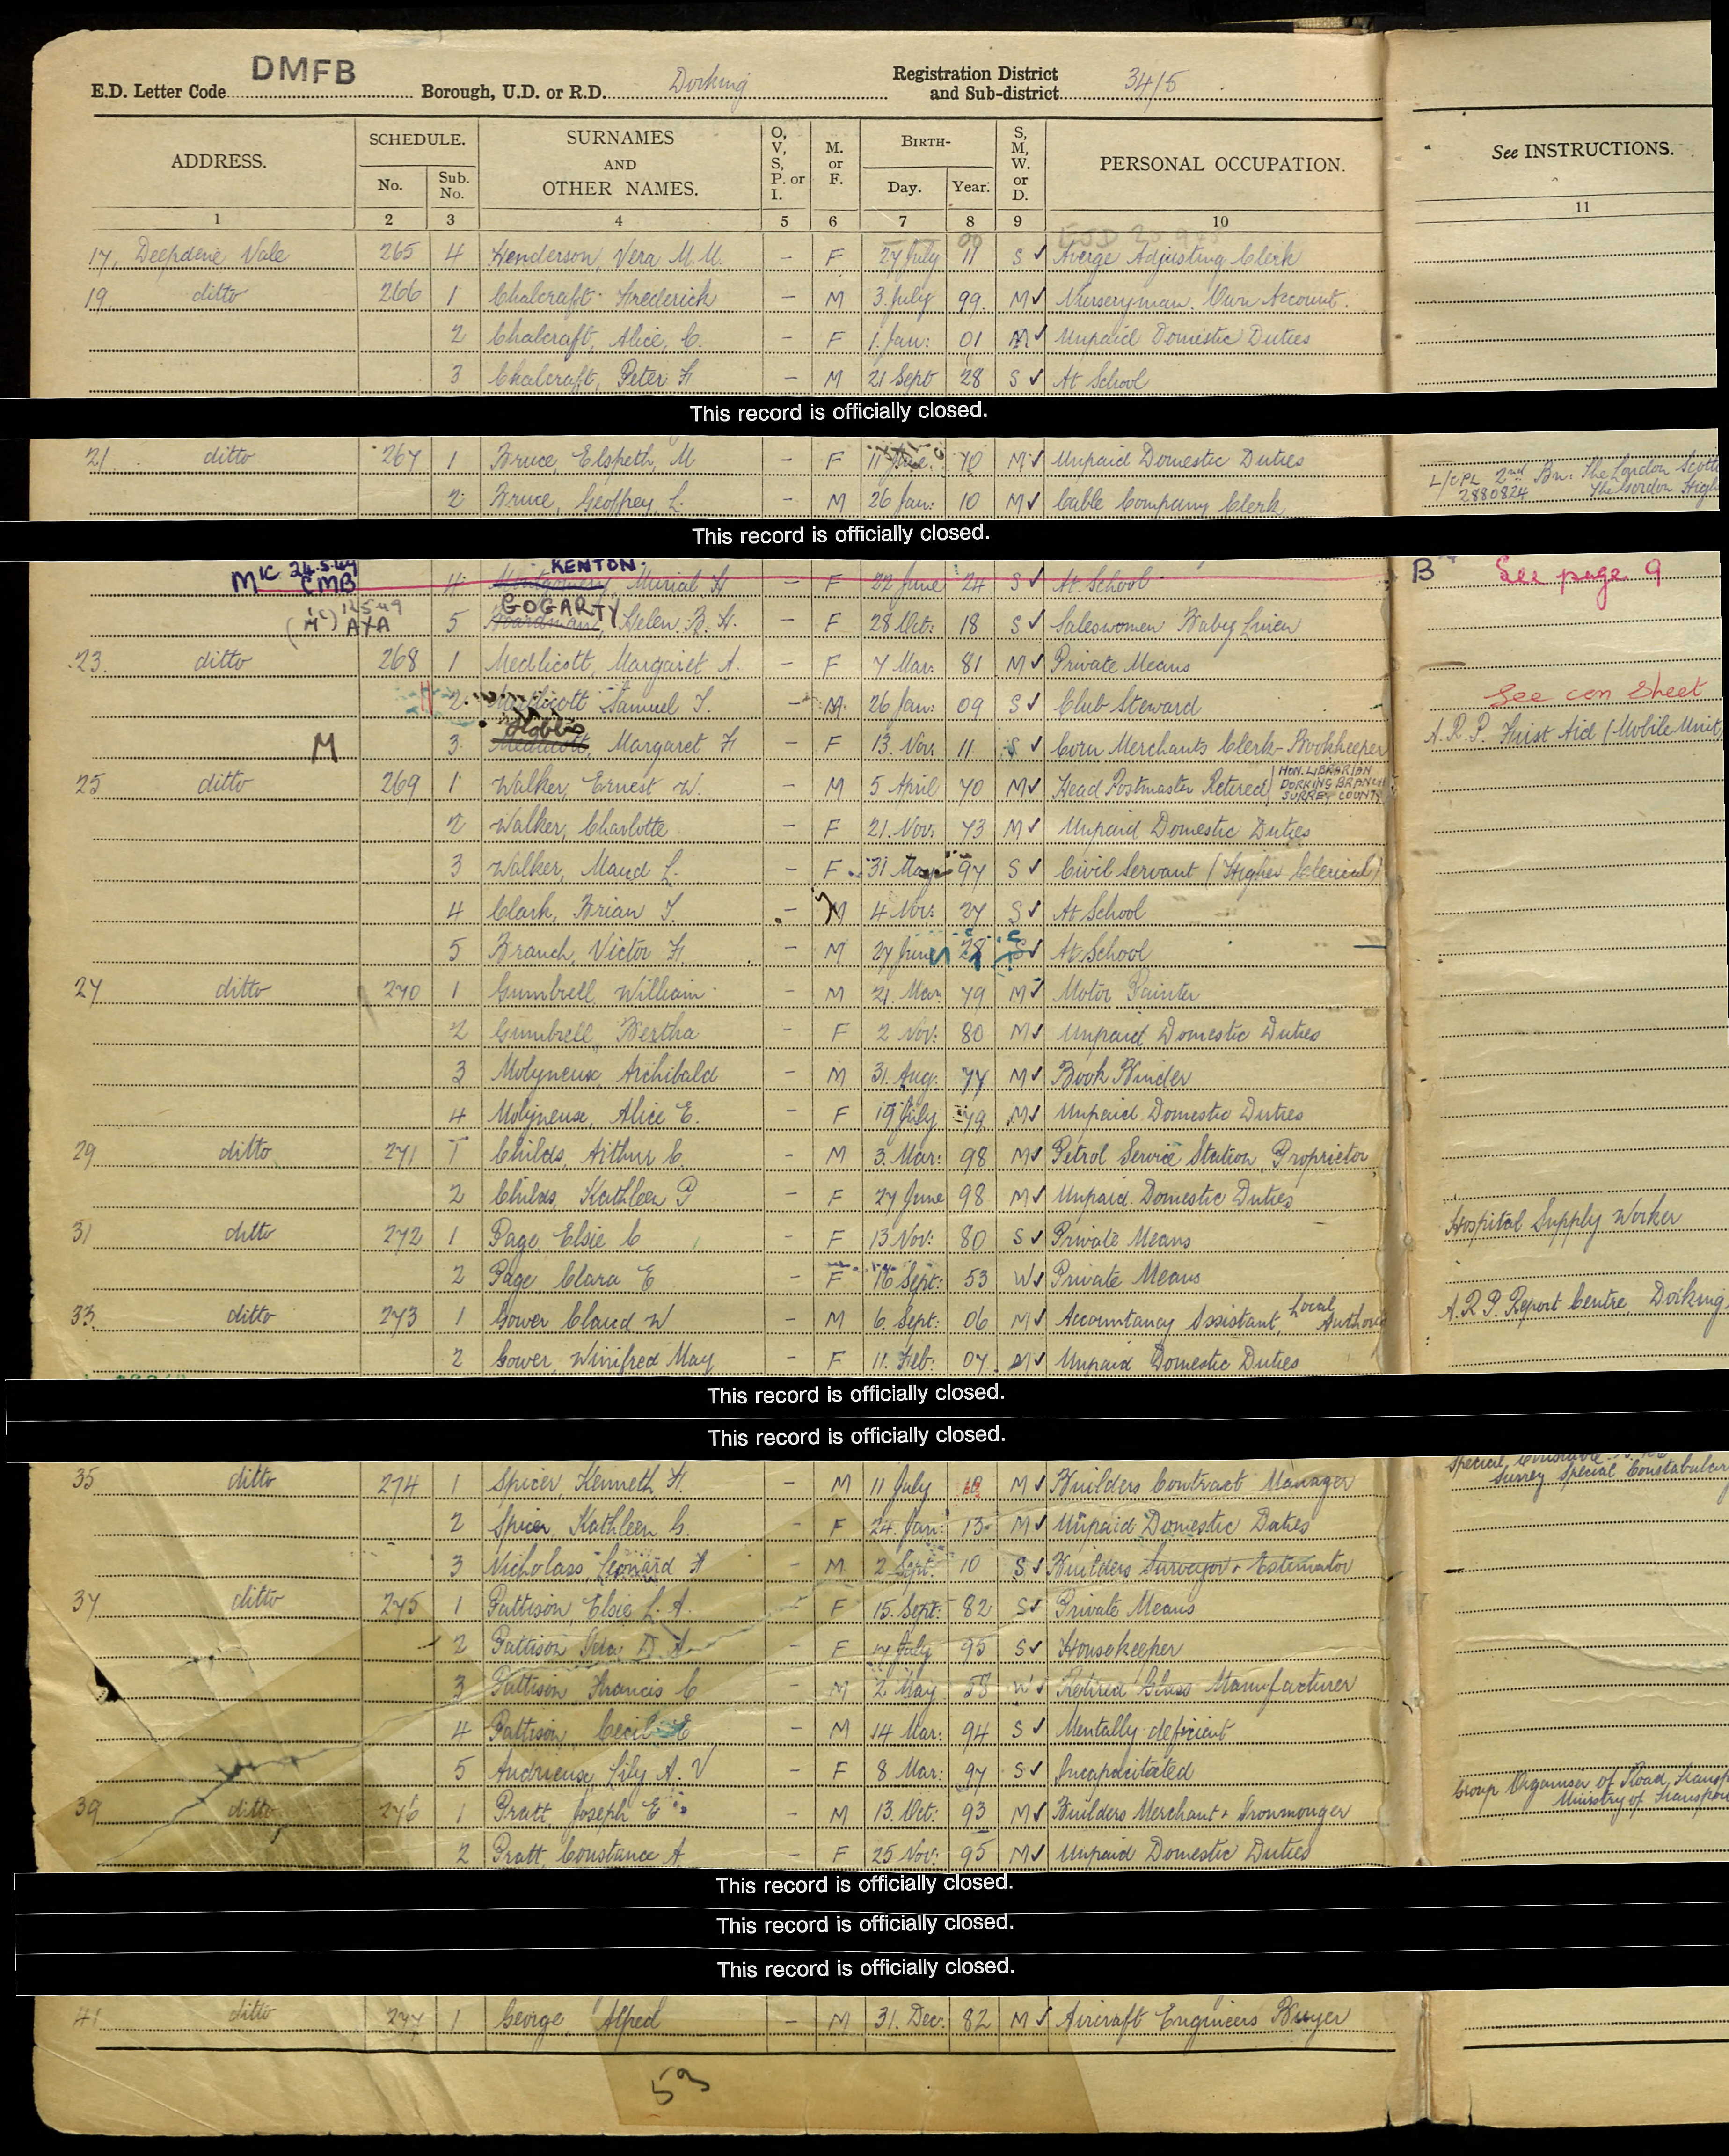 DMFB
E.D. Letter Code Borough, U.D. or R.D. Dorking Registration District and Sub-district 34/5
ADDRESS. SCHEDULE. No. Sub. No. SURNAMES AND OTHER NAMES. O, V, S, P. or I. M. or F. BIRTH- Day. Year. S, M, W. or D. PERSONAL OCCUPATION. See INSTRUCTIONS.
1 2 3 4 5 6 7 8 9 10 11
17, Deepdene Vale 265 4 Henderson, Vera M. M. - F 27 July 11 S ✓ Averge Adjusting Clerk
19. ditto 266 1 Chalcraft Frederick - M 3. July 99. M ✓ Nurseryman. Own Account.
2 Chalcraft, Alice, C. - F 1. Jan: 01 M ✓ Unpaid Domestic Duties
3 Chalcraft, Peter H - M 21 Sept 28 S ✓ At School
This record is officially closed.
21. ditto 267 1 Bruce, Elspeth, M - F 11 June 10 M ✓ Unpaid Domestic Duties
2 Bruce, Geoffrey, L. - M 26 Jan: 10 M ✓ Cable Company Clerk L/CPL 2nd Bn: The London Scott
2880824 The Gordon High
This record is officially closed.
MIC 24.5.49 CMB KENTON.
4 Montgomery, Murial H - F 22 June 24 S ✓ At School B See page 9
(MC) 12.5.49 AYA GOGARTY
5 Boardman, Helen. B. H. - F 28 Oct: 18 S ✓ Saleswomen Baby Linen
23. ditto 268 1 Medlicott, Margaret A. - F 7 Mar: 81 M ✓ Private Means
2. Medlicott Samuel J. - M. 26 Jan: 09 S ✓ Club Steward See con Sheet
M 3. Medlicott, Margaret H - F 13. Nov. 11 S ✓ Corn Merchants Clerk-Bookkeeper A.R.P. First Aid (Mobile Unit)
25 ditto 269 1 Walker, Ernest W. - M 5 April 70 M ✓ Head Postmaster Retired HON. LIBRARIAN DORKING BRANCH SURREY COUNTY
2 Walker, Charlotte - F 21. Nov. 73 M ✓ Unpaid Domestic Duties
3 Walker, Maud L. - F 31 May 97 S ✓ Civil Servant (Higher Clerical)
4 Clark, Brian J. - M 4 Nov: 27 S ✓ At School
5 Branch, Victor H - M 27 June 28 S ✓ At School
27 ditto 270 1 Gumbrell William - M 21. Mar: 79 M ✓ Motor Painter
2 Gumbrell, Bertha - F 2 Nov: 80 M ✓ Unpaid Domestic Duties
3 Molyneux Archibald - M 31. Aug. 77 M ✓ Book Binder
4 Molyneux, Alice E. - F 19 July 79 M ✓ Unpaid Domestic Duties
29 ditto 271 1 Childs, Arthur C. - M 3. Mar: 98 M ✓ Petrol Service Station, Proprietor,
2 Childs, Kathleen P - F 27 June 98 M ✓ Unpaid Domestic Duties
31 ditto 272 1 Page, Elsie C - F 13 Nov: 80 S ✓ Private Means Hospital Supply Worker
2 Page, Clara E - F 16 Sept: 53 W ✓ Private Means
33. ditto 273 1 Gower Claud W - M 6. Sept: 06 M ✓ Accountancy Assistant, Local Author A.R.P. Report Centre Dorking
2 Gower, Winifred May - F 11. Feb: 07 M ✓ Unpaid Domestic Duties
This record is officially closed.
This record is officially closed.
35 ditto 274 1 Spicer Kenneth, H. - M 11 July M ✓ Builders Contract Manager Surrey Special Constabulary
2 Spicer, Kathleen G. - F 24. Jan: 13 M ✓ Unpaid Domestic Duties
3 Nicholass, Leonard H - M 2 Sept. 10 S ✓ Builders Surveyor & Estemator
37 ditto 275 1 Pattison Elsie L. A. - F 15. Sept: 82 S ✓ Private Means
2 Pattison D. A. - F 17 July 95 S ✓ Housekeeper
3 Pattison Francis C - M 2 May 58 W ✓ Retired Glass Manufacturer
4 Pattison Cecil E - M 14 Mar: 94 S ✓ Mentally deficient
5 Andrieux, Lily A. V - F 8 Mar: 97 S ✓ Incapacitated
39 ditto 276 1 Pratt, Joseph E - M 13. Oct: 93 M ✓ Builders Merchant & Ironmonger Group Organiser of Road Transp
Ministry of Transport
2 Pratt, Constance A - F 25 Nov: 95 M ✓ Unpaid Domestic Duties
This record is officially closed.
This record is officially closed.
This record is officially closed.
41 ditto 277 1 George, Alfred - M 31. Dec: 82 M ✓ Aircraft Engineers Buyer
53